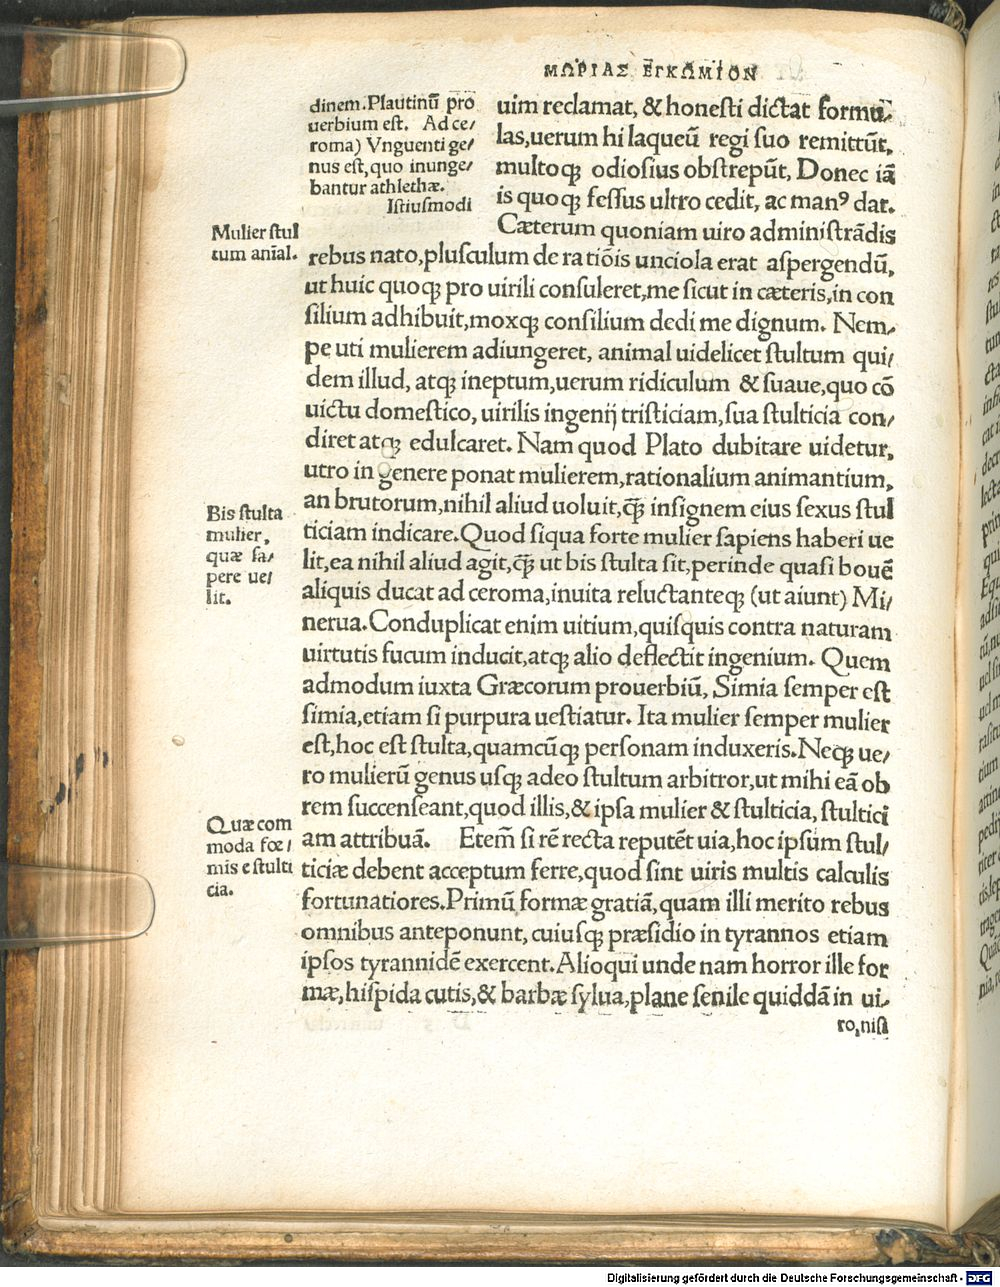 ΜΩΡΙΑΣ ΕΓΚΩΜΙΟΝ
dinem. Plautinū pro
uerbium est. Ad ce/
roma) Vnguenti ge/
nus est, quo inunge/
bantur athlethæ.
Istiusmodi
uim reclamat, & honesti dictat formu,
las, uerum hi laqueū regi suo remittūt,
multoqꝫ odiosius obstrepūt, Donec iā
is quoqꝫ fessus ultro cedit, ac manꝰ dat.
Cæterum quoniam uiro administrādis
Mulier stul
tum anīal.
rebus nato, plusculum de ratiōis unciola erat aspergendū,
ut huic quoqꝫ pro uirili consuleret, me sicut in cæteris, in con
silium adhibuit, moxqꝫ consilium dedi me dignum. Nem,
pe uti mulierem adiungeret, animal uidelicet stultum qui/
dem illud, atqꝫ ineptum, uerum ridiculum & suaue, quo cō
uictu domestico, uirilis ingenij tristiciam, sua stulticia con/
diret atqꝫ edulcaret. Nam quod Plato dubitare uidetur,
utro in genere ponat mulierem, rationalium animantium,
an brutorum, nihil aliud uoluit, q̄ꝫ insignem eius sexus stul
Bis stulta
mulier,
quæ sa/
pere ue/
lit.
ticiam indicare. Quod siqua forte mulier sapiens haberi ue
lit, ea nihil aliud agit, q̄ꝫ ut bis stulta sit, perinde quasi bouē
aliquis ducat ad ceroma, inuita reluctanteqꝫ (ut aiunt) Mi/
nerua. Conduplicat enim uitium, quisquis contra naturam
uirtutis fucum inducit, atqꝫ alio deflectit ingenium. Quem
admodum iuxta Græcorum prouerbiū, Simia semper est
simia, etiam si purpura uestiatur. Ita mulier semper mulier
est, hoc est stulta, quamcūqꝫ personam induxeris. Neqꝫ ue/
ro mulierū genus usqꝫ adeo stultum arbitror, ut mihi eā ob
rem succenseant, quod illis, & ipsa mulier & stulticia, stultici
Quæ com
moda fœ/
mis e stulti
cia.
am attribuā. Etem̄ si rē recta reputēt uia, hoc ipsum stul/
ticiæ debent acceptum ferre, quod sint uiris multis calculis
fortunatiores. Primū formæ gratiā, quam illi merito rebus
omnibus anteponunt, cuiusqꝫ præsidio in tyrannos etiam
ipsos tyrannidē exercent. Alioqui unde nam horror ille for
mæ, hispida cutis, & barbæ sylua, plane senile quiddā in ui,
ro, nisi
Digitalisierung gefördert durch die Deutsche Forschungsgemeinschaft - DFG